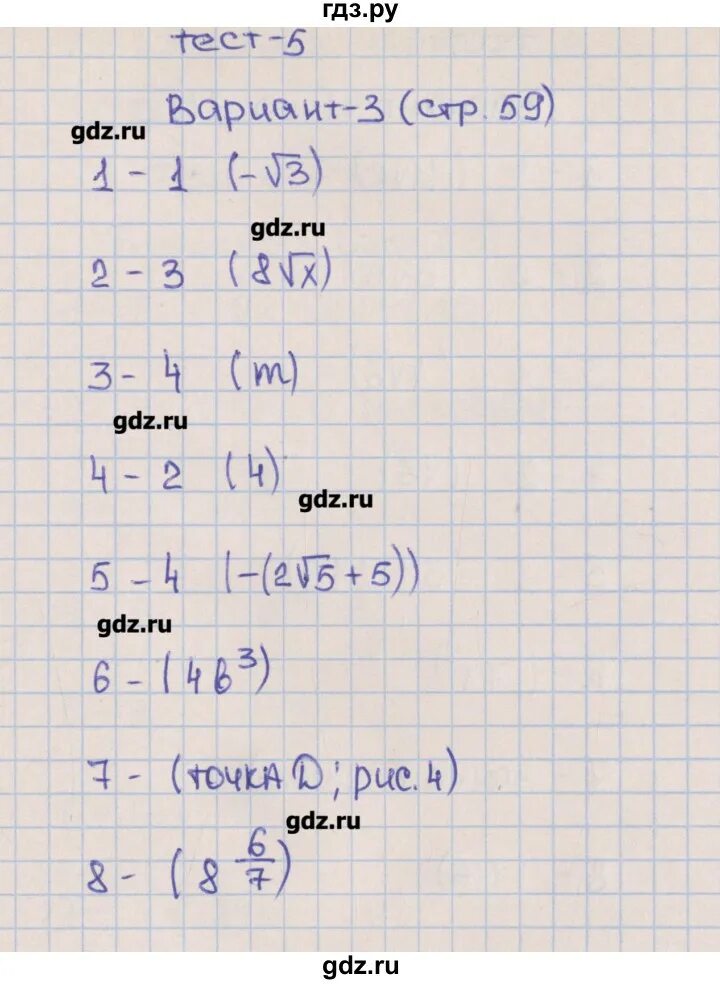 гдз.ру
тест-5
Вариант-3 (стр. 59)
gdz.ru
1 - 1 (-√3)
gdz.ru
2 - 3 (8√x)
3 - 4 (m)
gdz.ru
4 - 2 (4)
gdz.ru
5 - 4 (-(2√5 + 5))
gdz.ru
6 - (4b³)
7 - (точка D; рис. 4)
gdz.ru
8 - (8 6/7)
gdz.ru